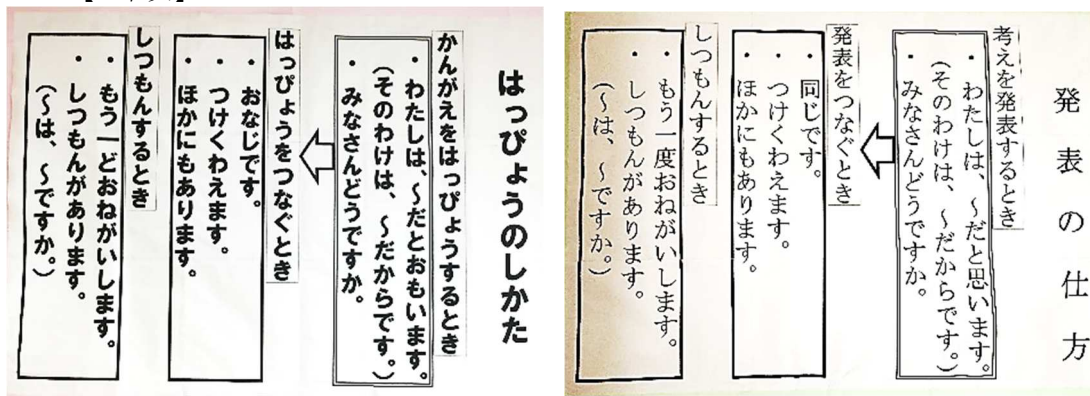 はっぴょうのしかた
かんがえをはっぴょうするとき
・わたしは、~だとおもいます。
(そのわけは、~だからです。)
・みなさんどうですか。
はっぴょうをつなぐとき
・おなじです。
・つけくわえます。
・ほかにもあります。
しつもんするとき
・もう一どおねがいします。
・しつもんがあります。
(~は、~ですか。)
発表の仕方
考えを発表するとき
・わたしは、~だと思います。
(そのわけは、~だからです。)
・みなさんどうですか。
発表をつなぐとき
・同じです。
・つけくわえます。
・ほかにもあります。
しつもんするとき
・もう一度おねがいします。
・しつもんがあります。
(~は、~ですか。)